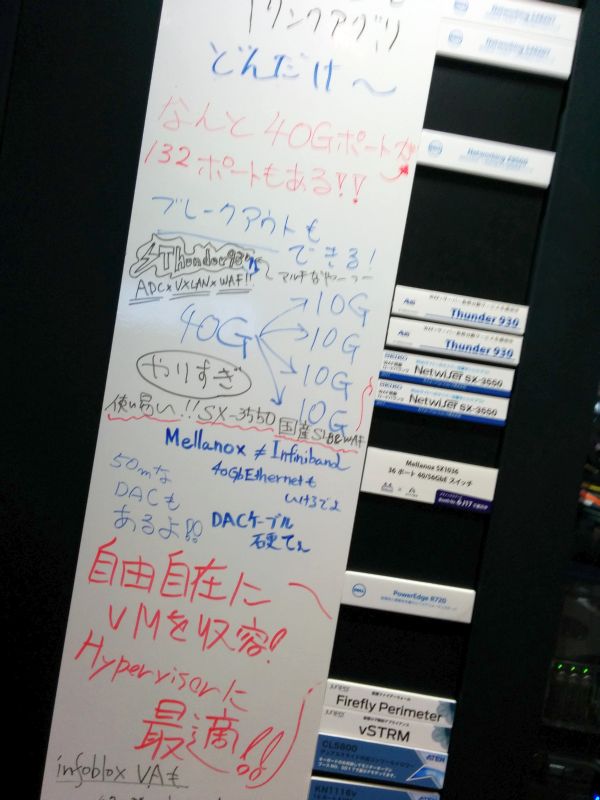 リンクアグリ
どんだけ〜
なんと40Gポートが
132ポートもある!!
ブレークアウトも
できる!
Thunder930
マルチなやーつー
ADC×VXLAN×WAF!!
40G
10G
10G
10G
10G
やりすぎ
使い易い!!SX-3550
国産SLB&WAF
Mellanox ≠ Infiniband
40GbEthernetも
いけるでよ
50mな
DACも
あるよ!!
DACケーブル
硬てぇ
自由自在に
VMを収容!
Hyperviserに
最適!!
infoblox VAも
DELL
DELL
DELL
Thunder 930
Thunder 930
SEIKO
Netwiser SX-3550
SEIKO
Netwiser SX-3550
Mellanox SX1036
36 ポート 40/56GbE スイッチ
DELL
PowerEdge R720
Firefly Perimeter
vSTRM
CL5800
ATEN
KN1116v